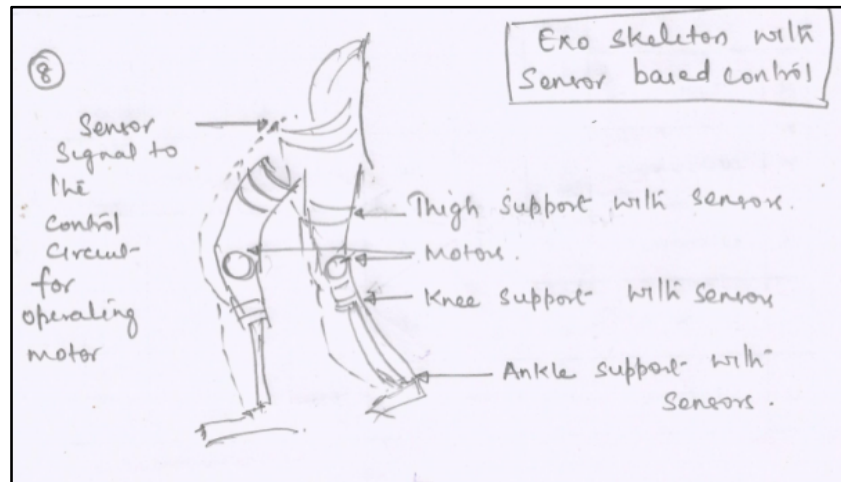 8
Exo skeleton with
Sensor based control
Sensor
Signal to
the
control
circuit
for
operating
motor
Thigh support with sensors.
Motors.
Knee support with sensors
Ankle support with
sensors.